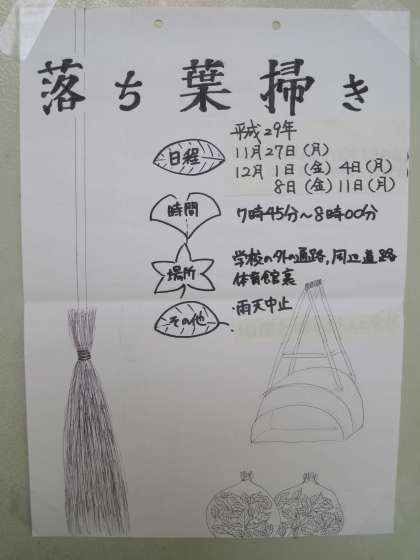 落ち葉掃き
日程
平成29年
11月27日(月)
12月1日(金) 4日(月)
8日(金) 11日(月)
時間
7時45分～8時00分
場所
学校の外の通路,周辺道路
体育館裏
その他
・雨天中止
・